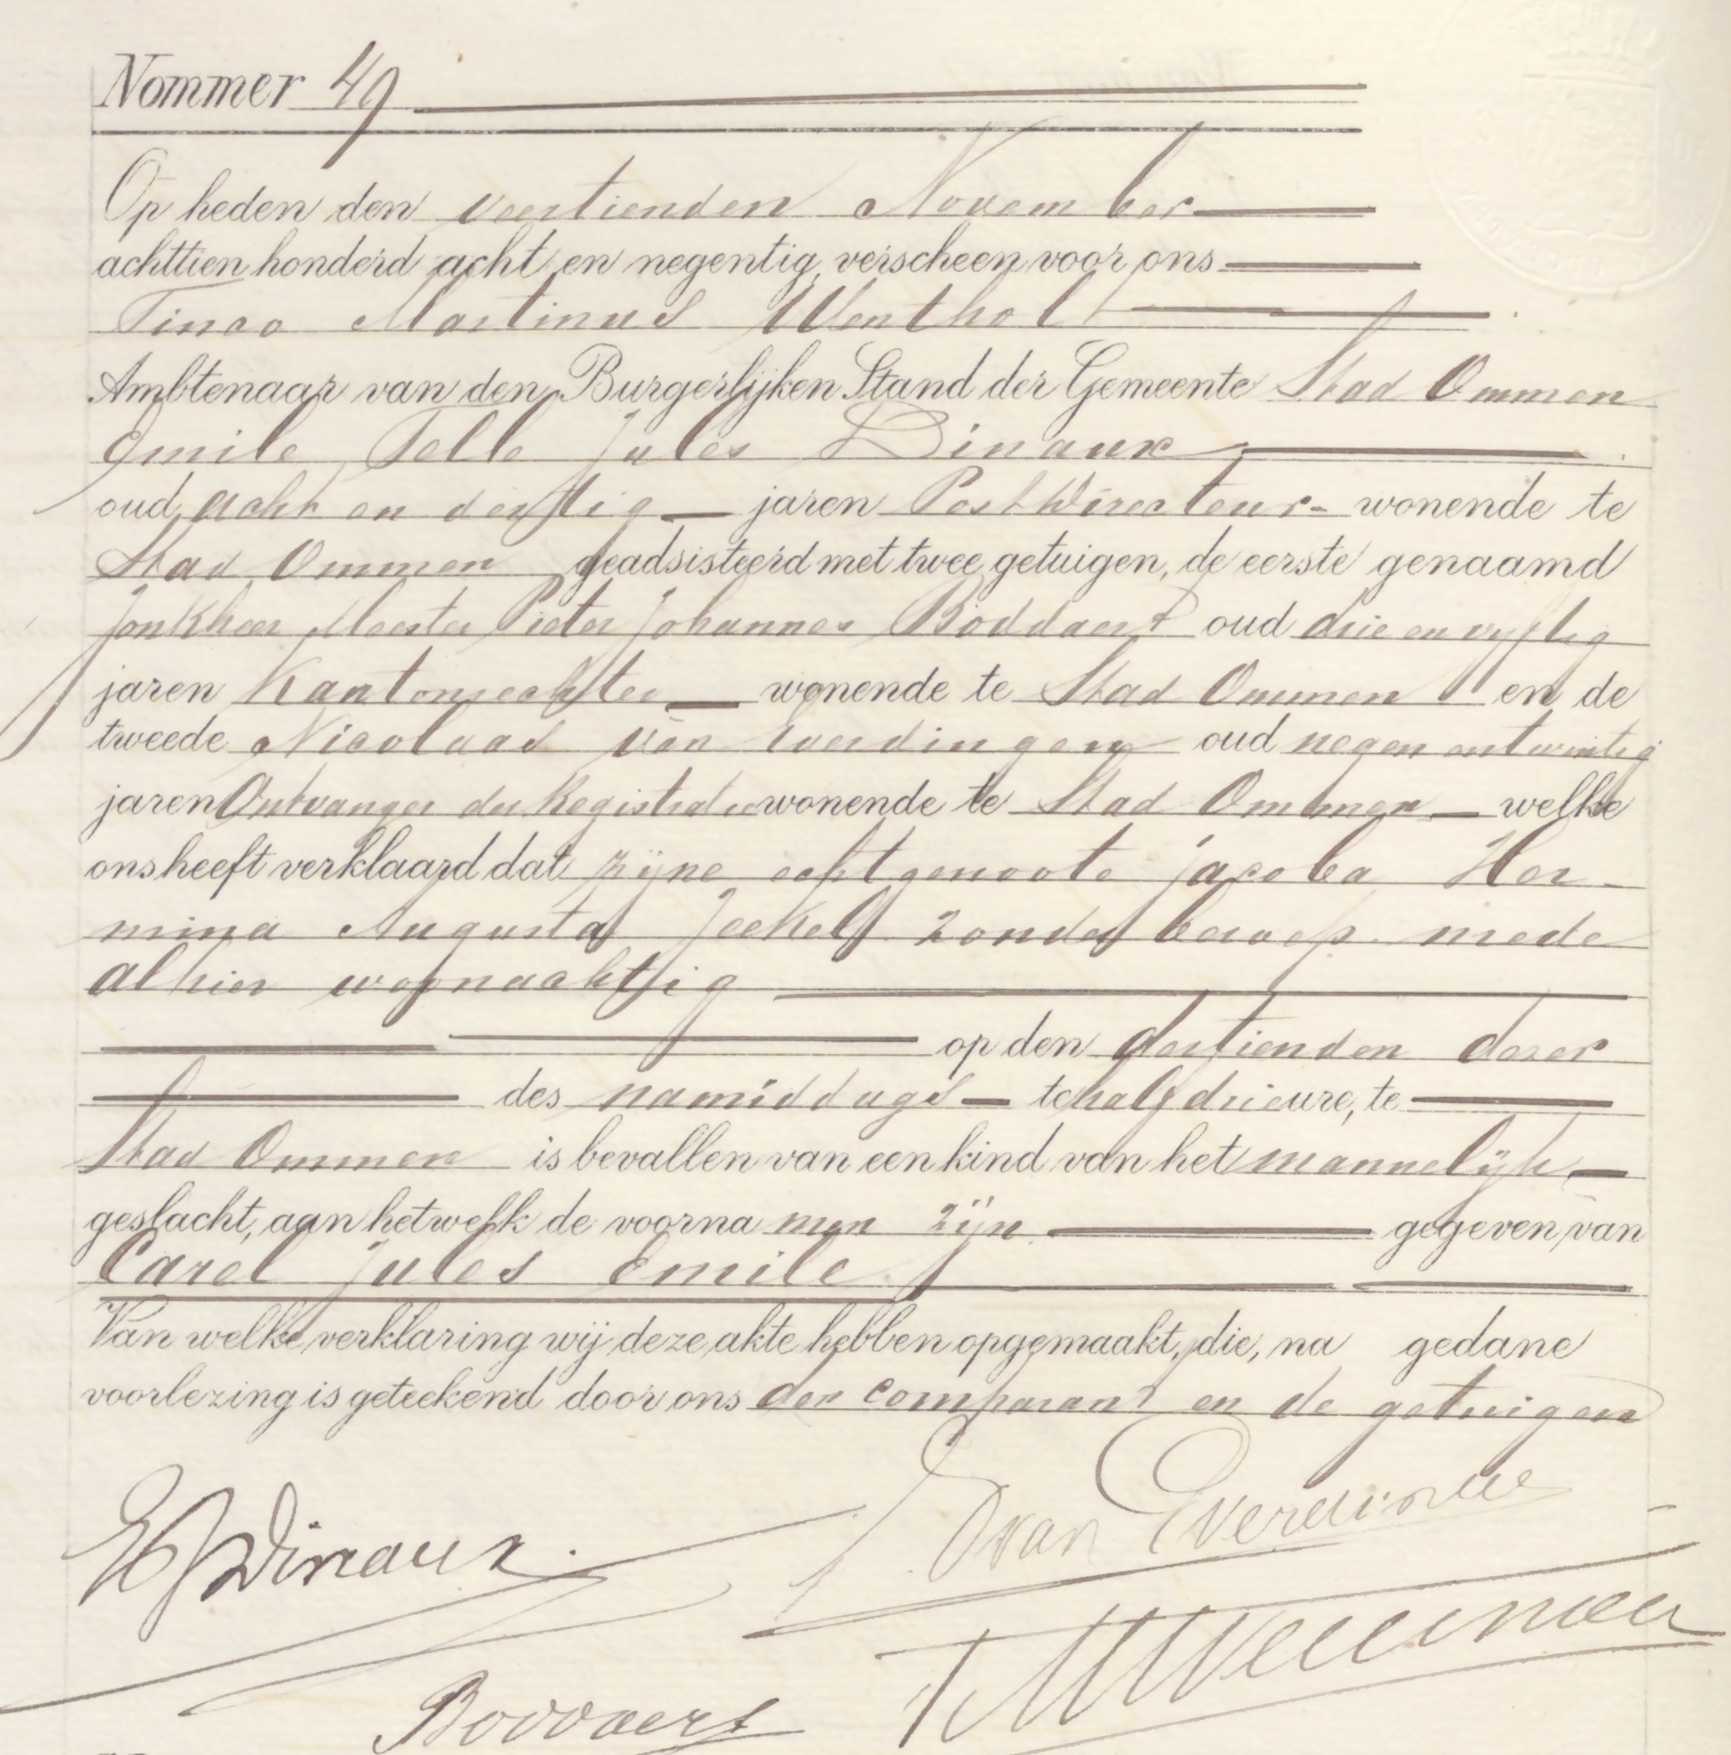 Nommer 49
Op heden den veertienden November
achttien honderd acht en negentig, verscheen voor ons
Tinco Martinus Wentholt
Ambtenaar van den Burgerlijken Stand der Gemeente Stad Ommen
Emile Telle Jules Dinaux
oud acht en dertig jaren Postdirecteur wonende te
Stad Ommen geadsisteerd met twee getuigen, de eerste genaamd
Jonkheer Meester Pieter Johannes Boddaert oud drie en vijftig
jaren Kantonrechter wonende te Stad Ommen en de
tweede Nicolaas van Everdingen oud negen en twintig
jaren Ontvanger der Registratie wonende te Stad Ommen welke
ons heeft verklaard dat zijne echtgenoote Jacoba Her-
mina Augusta Jeekel zonder beroep mede
alhier woonachtig
op den dertienden dezer
des namiddags te half drie ure, te
Stad Ommen is bevallen van een kind van het mannelijk
geslacht, aan hetwelk de voornamen zijn gegeven van
Carel Jules Emile
Van welke verklaring wij deze akte hebben opgemaakt, die, na gedane
voorlezing is geteekend door ons den comparant en de getuigen
Dinaux.
van Everdingen
Boddaert